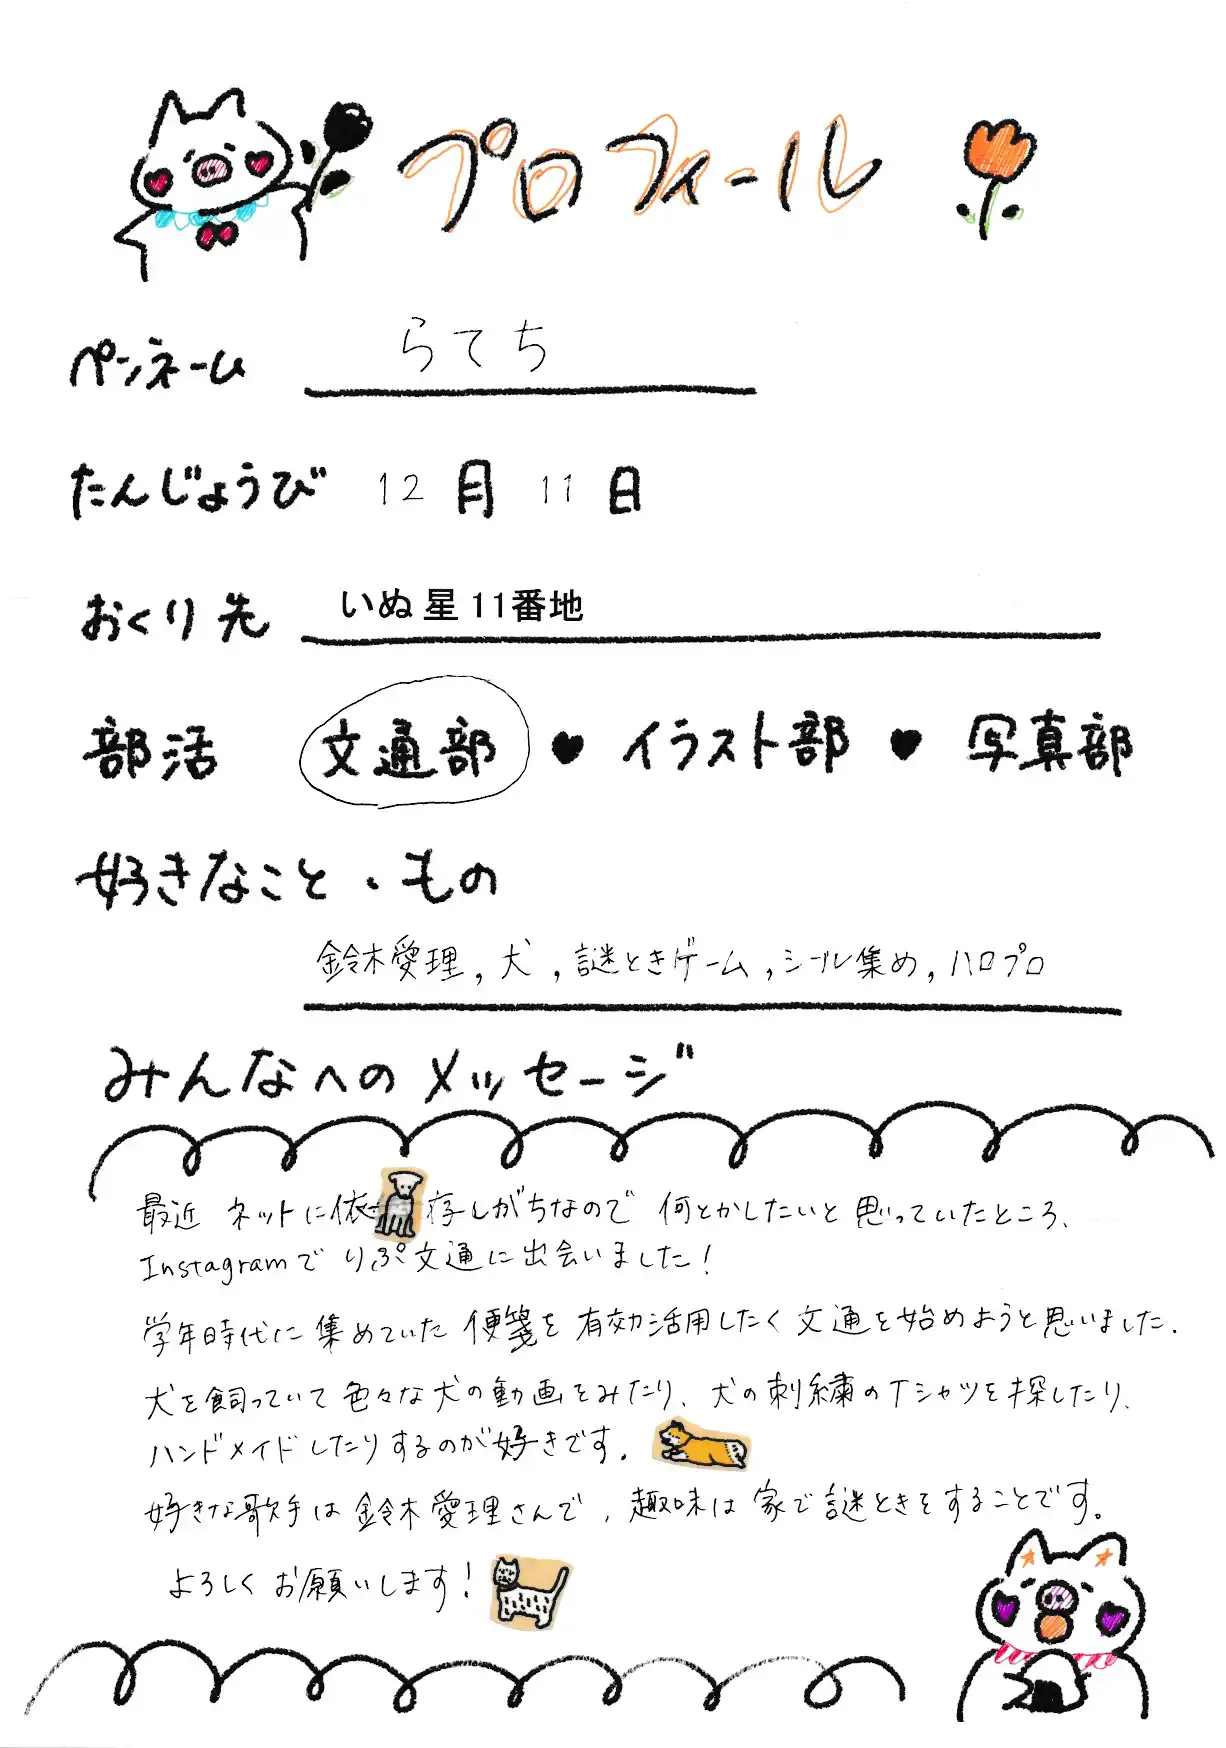 プロフィール
ペンネーム らてち
たんじょうび 12月 11日
おくり先 いぬ星11番地
部活 文通部 ♥ イラスト部 ♥ 写真部
好きなこと・もの
鈴木愛理, 犬, 謎ときゲーム, シール集め, ハロプロ
みんなへのメッセージ
最近 ネットに依存しがちなので 何とかしたいと思っていたところ、
Instagramで りぷ文通に出会いました!
学年時代に集めていた便箋を有効活用したく文通を始めようと思いました.
犬を飼っていて色々な犬の動画をみたり、犬の刺繍のTシャツを探したり、
ハンドメイドしたりするのが好きです.
好きな歌手は鈴木愛理さんで, 趣味は家で謎ときをすることです。
よろしくお願いします!